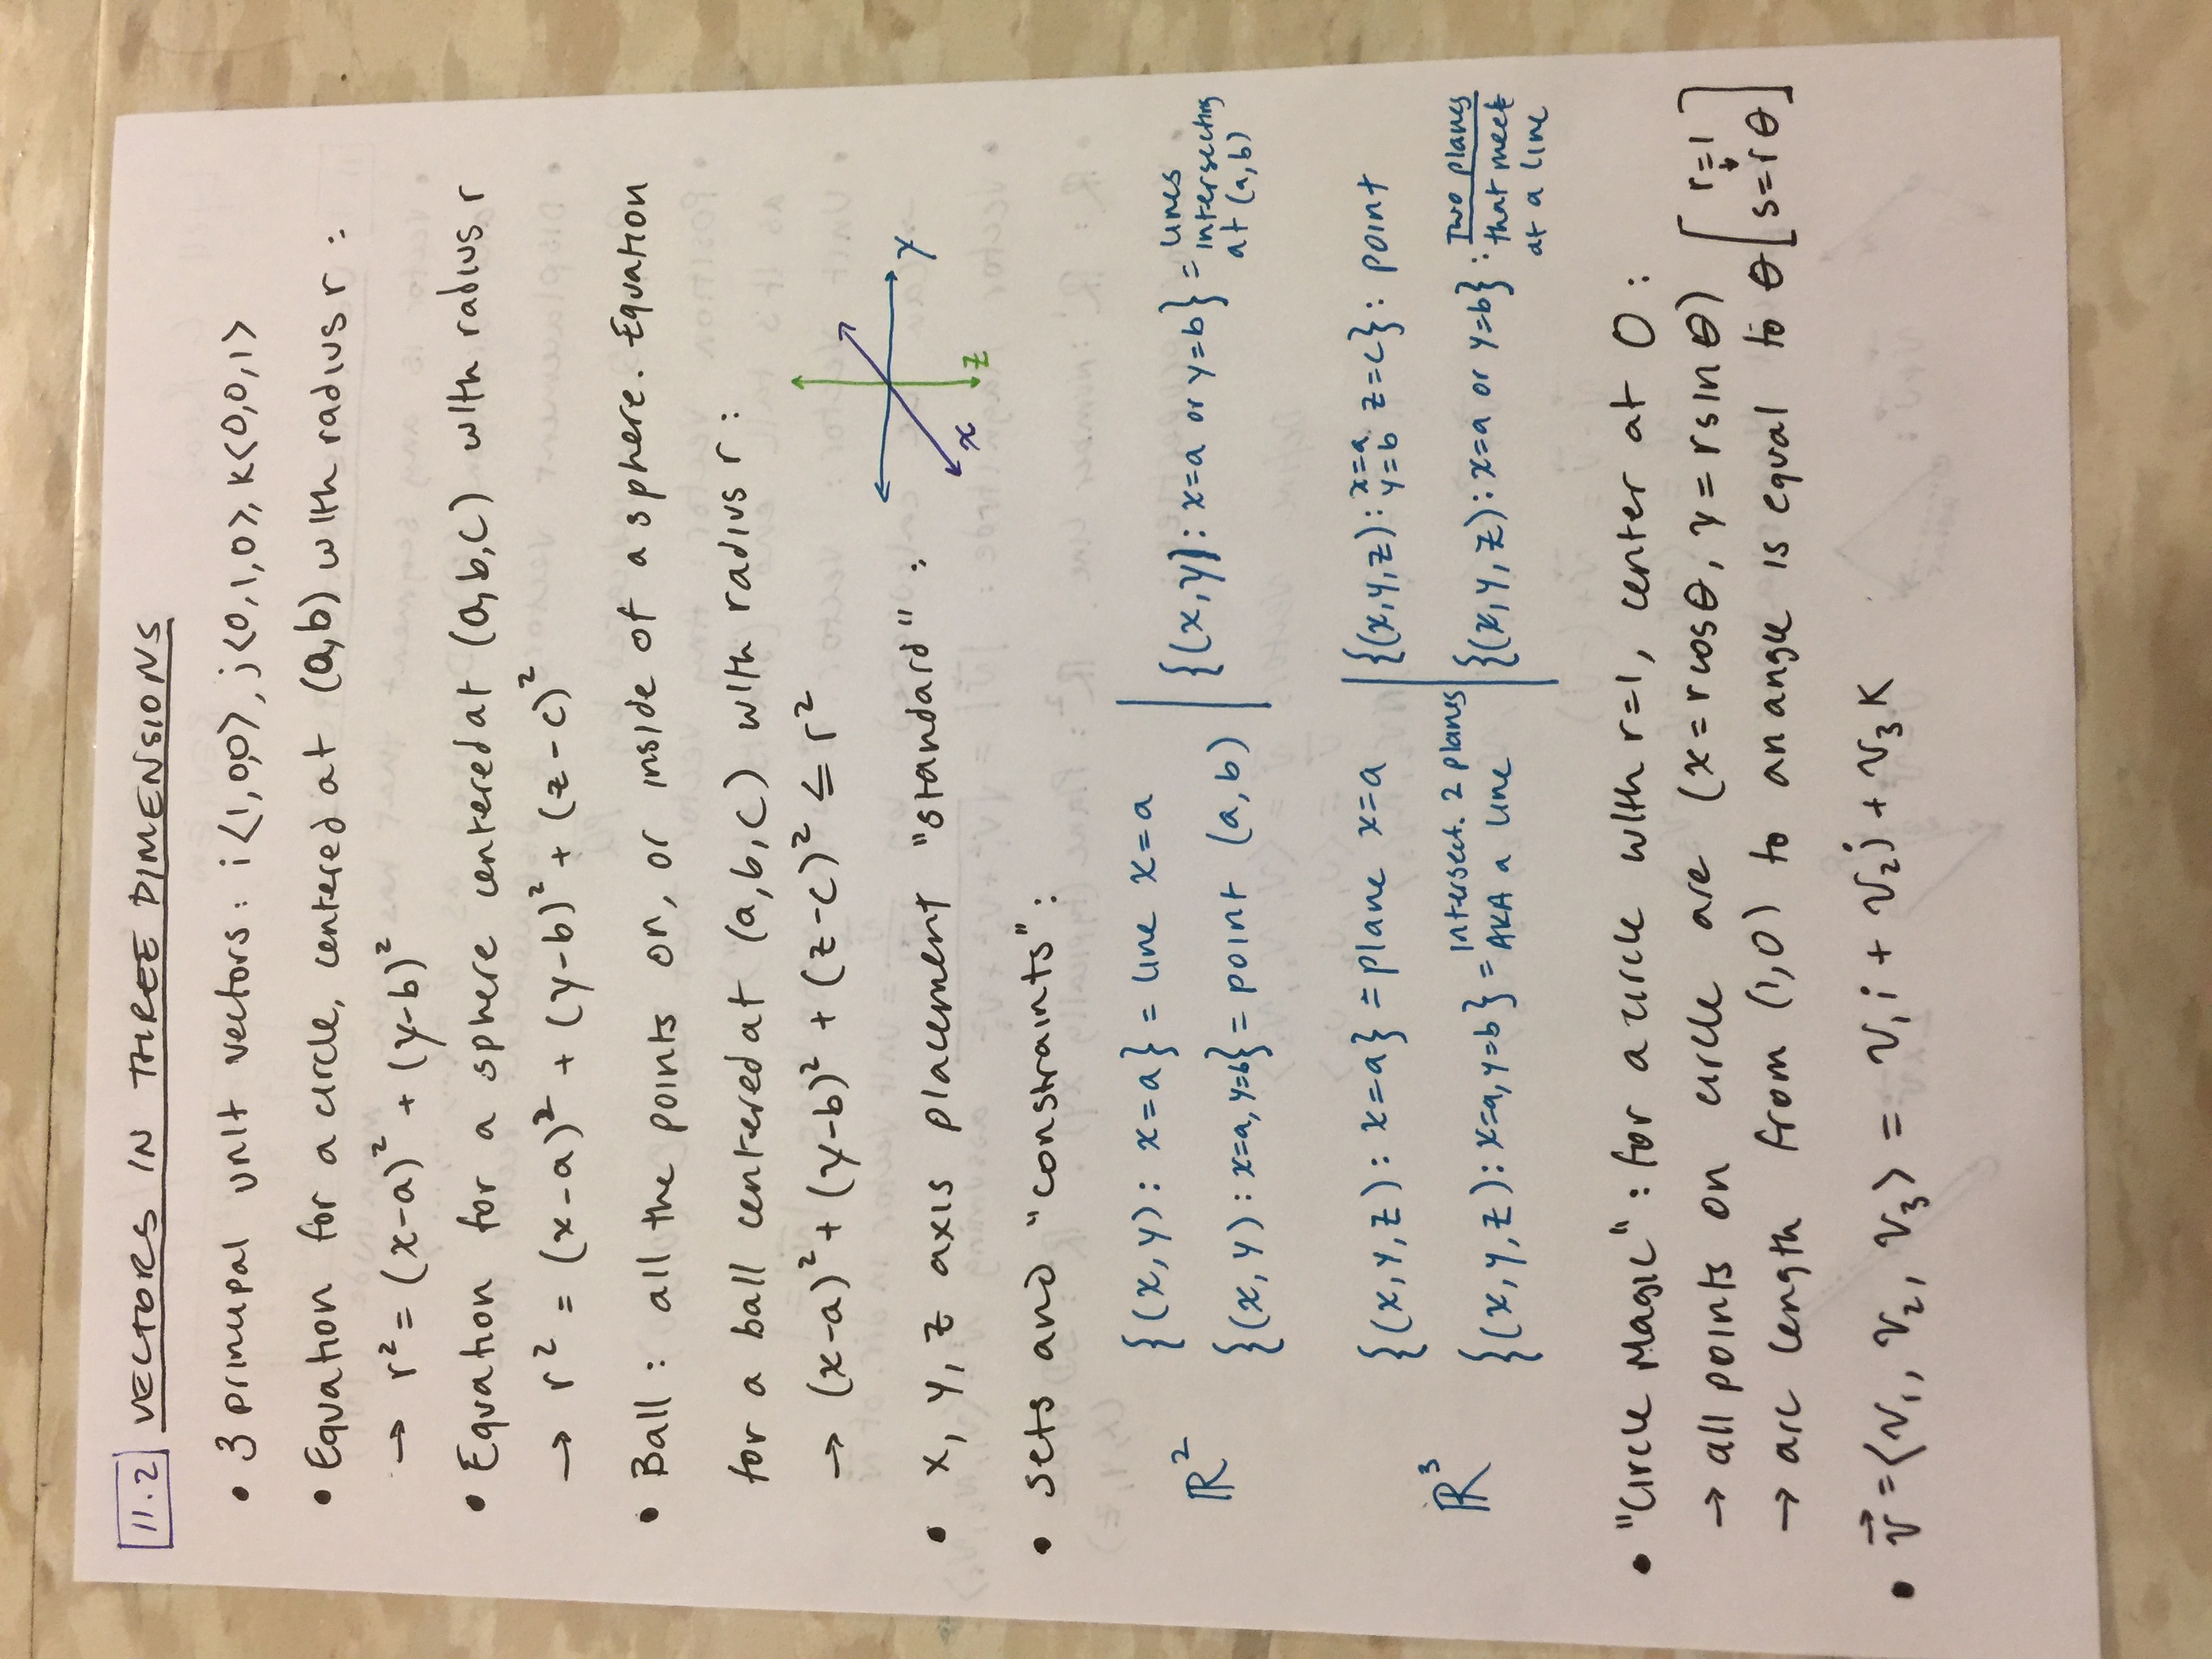 11.2 VECTORS IN THREE DIMENSIONS
• 3 principal unit vectors: i<1,0,0>, j<0,1,0>, k<0,0,1>
• Equation for a circle, centered at (a,b) with radius r :
→ r² = (x-a)² + (y-b)²
• Equation for a sphere centered at (a,b,c) with radius r
→ r² = (x-a)² + (y-b)² + (z-c)²
• Ball : all the points on, or inside of a sphere. Equation
for a ball centered at (a,b,c) with radius r :
→ (x-a)² + (y-b)² + (z-c)² ≤ r²
• x, y, z axis placement "standard" :
y
x
z
• sets and "constraints":
ℝ²
{(x,y): x=a} = line x=a
{(x,y): x=a, y=b} = point (a,b)
{(x,y): x=a or y=b} = lines
intersecting
at (a,b)
ℝ³
{(x,y,z): x=a} = plane x=a
{(x,y,z): x=a, y=b} = intersect. 2 planes
AKA a line
{(x,y,z): x=a y=b z=c}: point
{(x,y,z): x=a or y=b}: Two planes
that meet
at a line
• "Circle Magic": for a circle with r=1, center at 0 :
→ all points on circle are (x=rcosθ, y=rsinθ) [r=1
→ arc length from (1,0) to an angle is equal to θ [↓ s=rθ]
• v⃗=<v₁, v₂, v₃> = v₁i + v₂j + v₃k